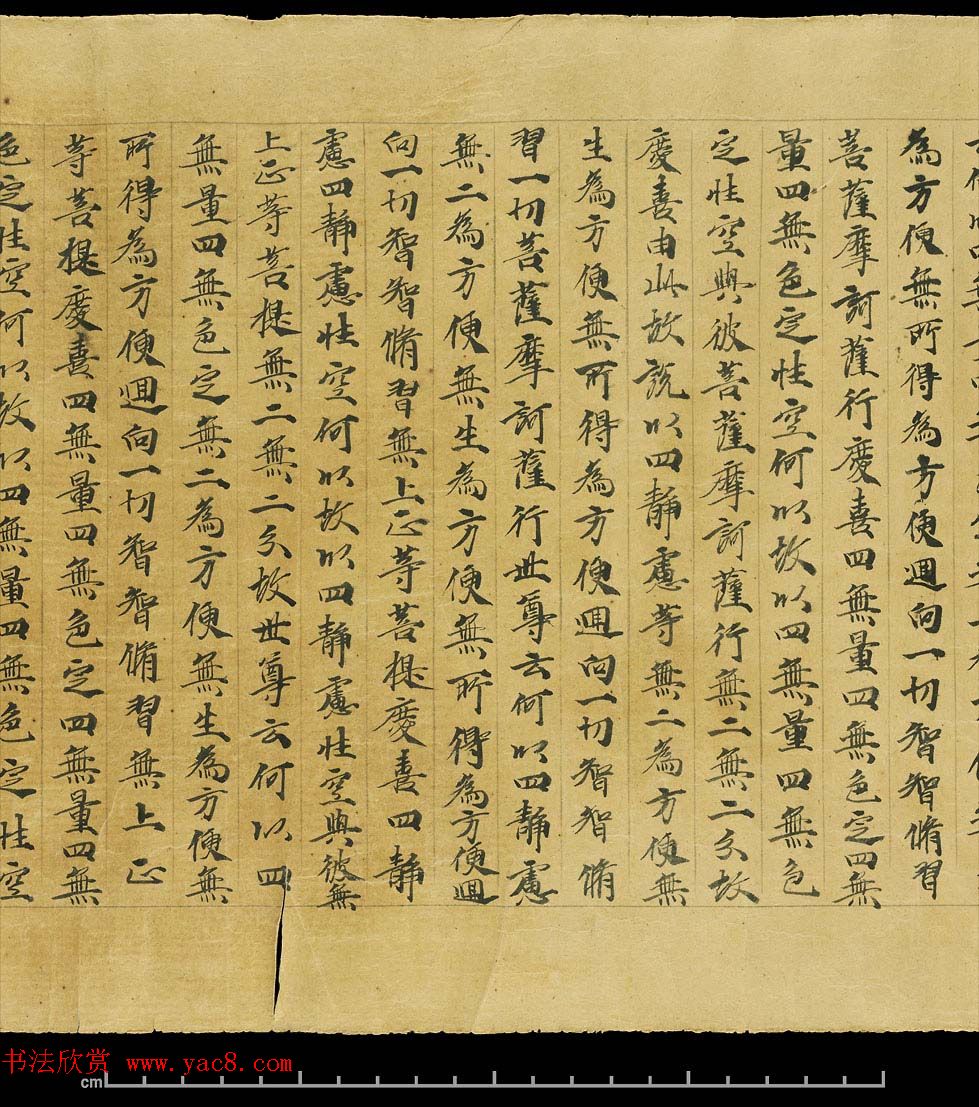 為方便無所得為方便迴向一切智智脩習
菩薩摩訶薩行慶喜四無量四無色定四無
量四無色定性空何以故以四無量四無色
定性空與彼菩薩摩訶薩行無二無二分故
慶喜由此故說以四靜慮等無二為方便無
生為方便無所得為方便迴向一切智智脩
習一切菩薩摩訶薩行世尊云何以四靜慮
無二為方便無生為方便無所得為方便迴
向一切智智脩習無上正等菩提慶喜四靜
慮四靜慮性空何以故以四靜慮性空與彼無
上正等菩提無二無二分故世尊云何以四
無量四無色定無二為方便無生為方便無
所得為方便迴向一切智智脩習無上正
等菩提慶喜四無量四無色定四無量四無
色定性空何以故以四無量四無色定性空
书法欣赏 www.yac8.com
cm